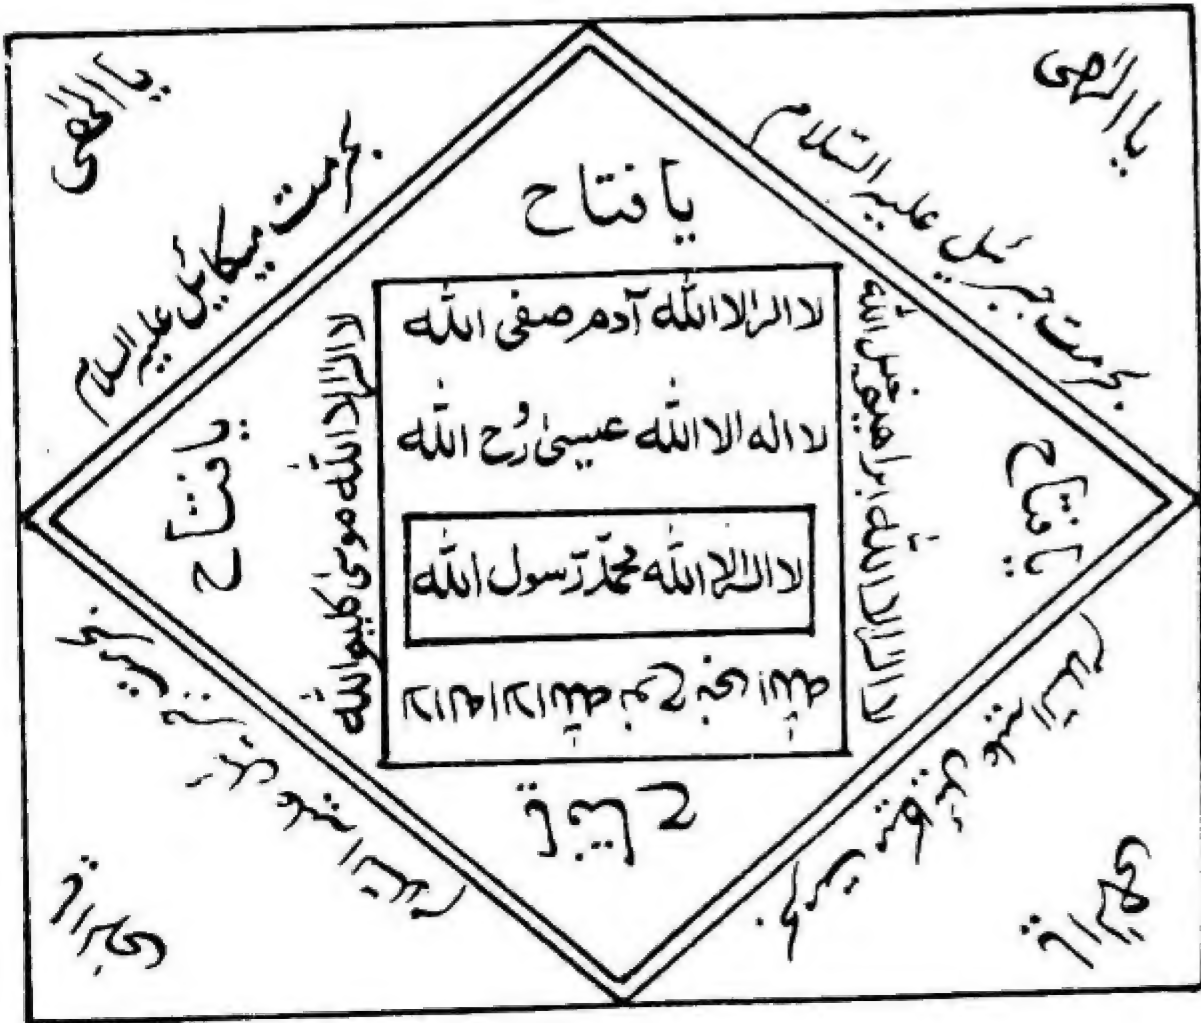 یا الٰھی
یا الٰھی
بحرمت جبرئیل علیہ السّلام
بحرمت میکائیل علیہ السلام
یا فتاح
لا الہ الا اللّٰه آدم صفی اللّٰه
لا اله الا اللّٰه عیسیٰ رُح اللّٰه
لا الہ الا اللّٰه محمّد رّسول اللّٰه
لا اله الا اللّٰه نوح نجی اللّٰه
لا الہ الا اللّٰه ابراھیم خلیل اللّٰه
لا الہ الا اللّٰه موسیٰ کلیم اللّٰه
یا فتاح
یا فتاح
یا فتاح
علیہ السّلام
بحرمت علیہ السّلام
یا الٰھی
یا الٰھی